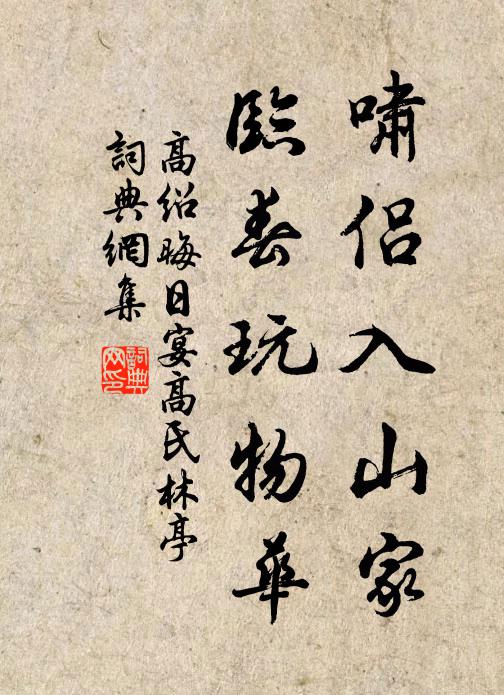 嘯侶入山家
臨春玩物華
高紹晦日宴高氏林亭
詞典網集
詞典
网印